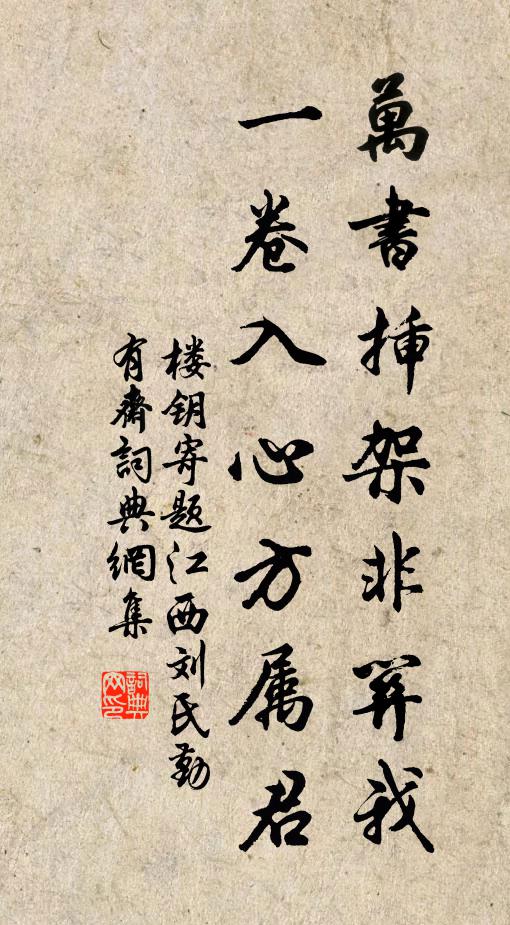 萬書挿架非関我
一卷入心方属君
楼钥寄题江西刘氏勤
有齋詞典網集
詞典网印